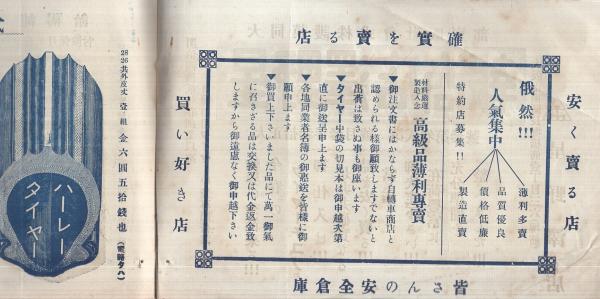 確實を賣る店
安く賣る店
俄然!!!
人氣集中
薄利多賣
品質優良
價格低廉
製造直賣
特約店募集!!
材料嚴選
製造入念
高級品薄利專賣
▼御注文書にはかならず自轉車商店と
認められる樣御願致しますでないと
出荷は致さぬ事も御座います
▼タイヤー中袋の切見本は御申越次第
直に御送呈申上ます
▼各地同業者名簿の御惠送を皆樣に御
願申上ます
▼御買上下さいました品にて萬一御氣
に召さざる品は交換又は代金返金致
しますから御遠慮なく御申越下さい
買い好き店
皆さんの安全倉庫
ハーレー
タイヤー
28 26 共外皮丈 壹組 金六圓五拾錢也
(電略タハ)